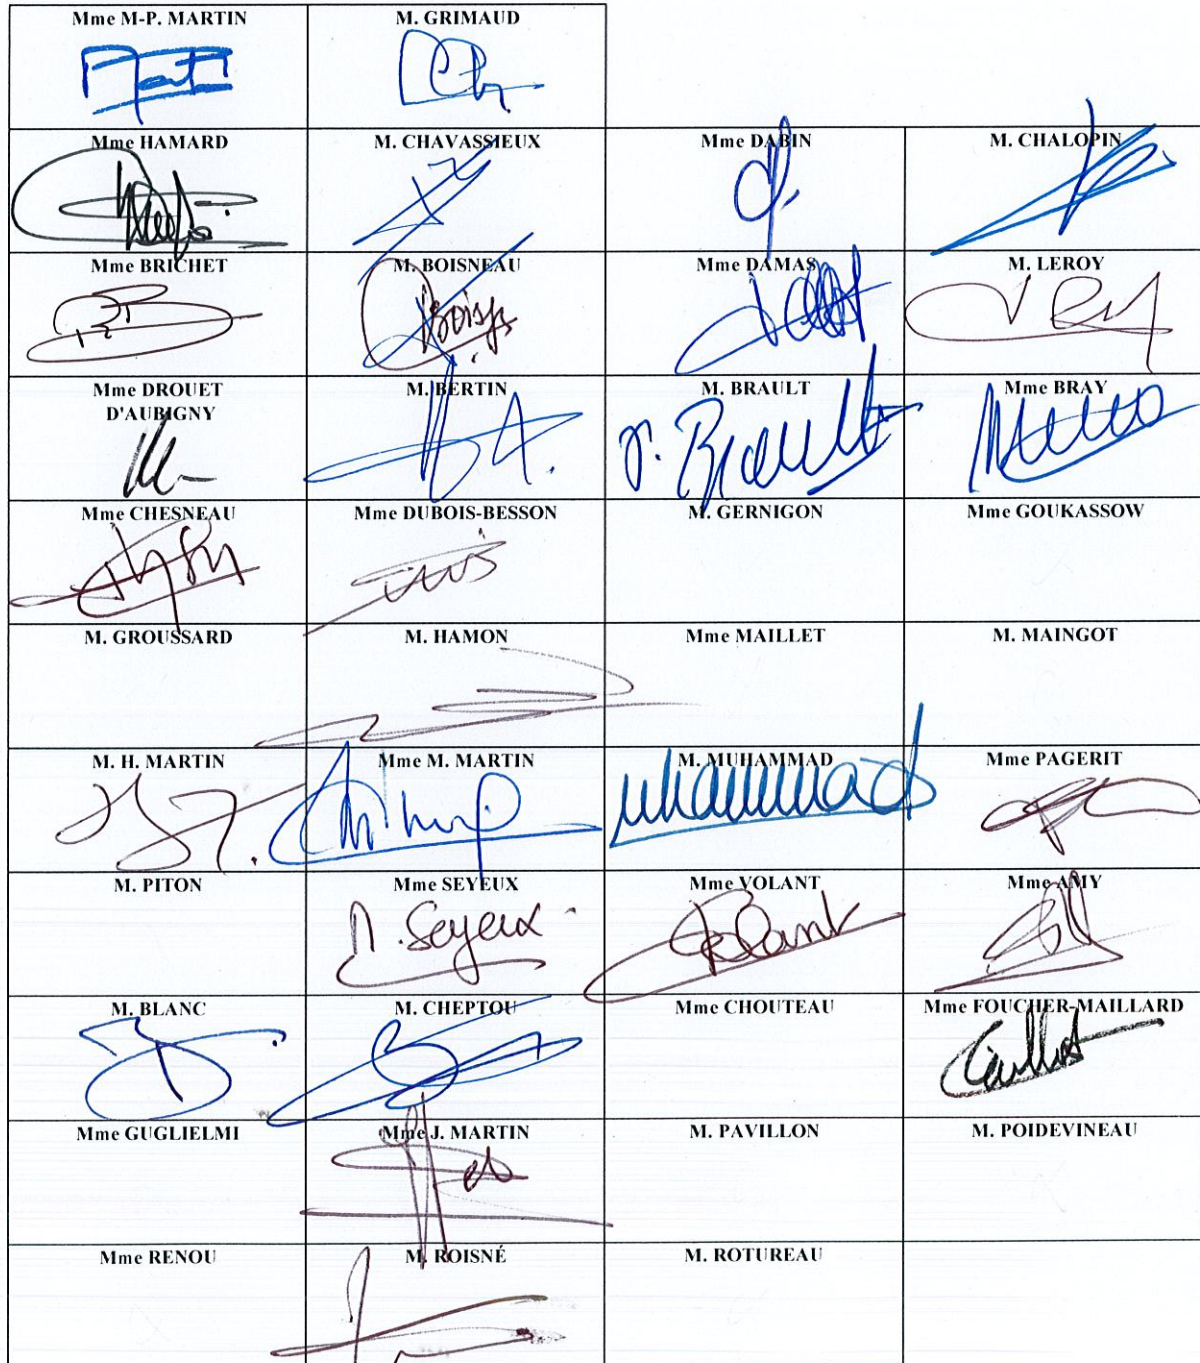 Mme M-P. MARTIN
M. GRIMAUD
Mme HAMARD
M. CHAVASSIEUX
Mme DABIN
M. CHALOPIN
Mme BRICHET
M. BOISNEAU
Mme DAMAS
M. LEROY
Mme DROUET
D'AUBIGNY
M. BERTIN
M. BRAULT
Mme BRAY
Mme CHESNEAU
Mme DUBOIS-BESSON
M. GERNIGON
Mme GOUKASSOW
M. GROUSSARD
M. HAMON
Mme MAILLET
M. MAINGOT
M. H. MARTIN
Mme M. MARTIN
M. MUHAMMAD
muhammad
Mme PAGERIT
M. PITON
Mme SEYEUX
Seyeux
Mme VOLANT
Mme AMY
M. BLANC
M. CHEPTOU
Mme CHOUTEAU
Mme FOUCHER-MAILLARD
Mme GUGLIELMI
Mme J. MARTIN
M. PAVILLON
M. POIDEVINEAU
Mme RENOU
M. ROISNÉ
M. ROTUREAU